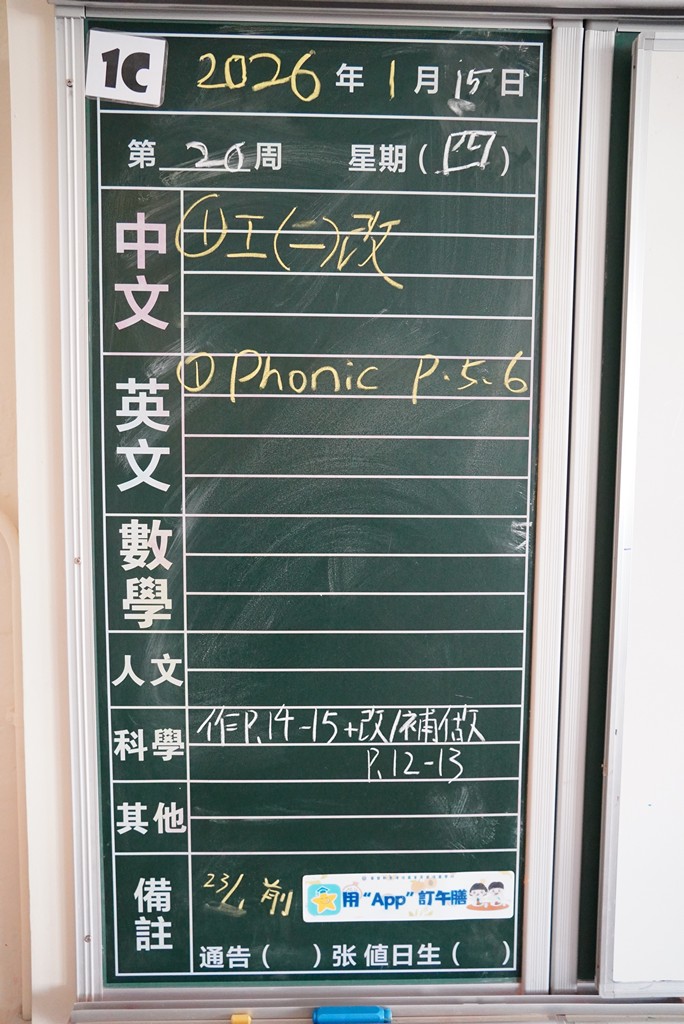 1C
2026年1月15日
第20周 星期(四)
中文
①工(二)改
英文
① Phonic P.5.6
數學
人文
科學
作P.14-15+改/補做
P.12-13
其他
備註
23/1前
用“App”訂午膳
通告( )张 值日生( )